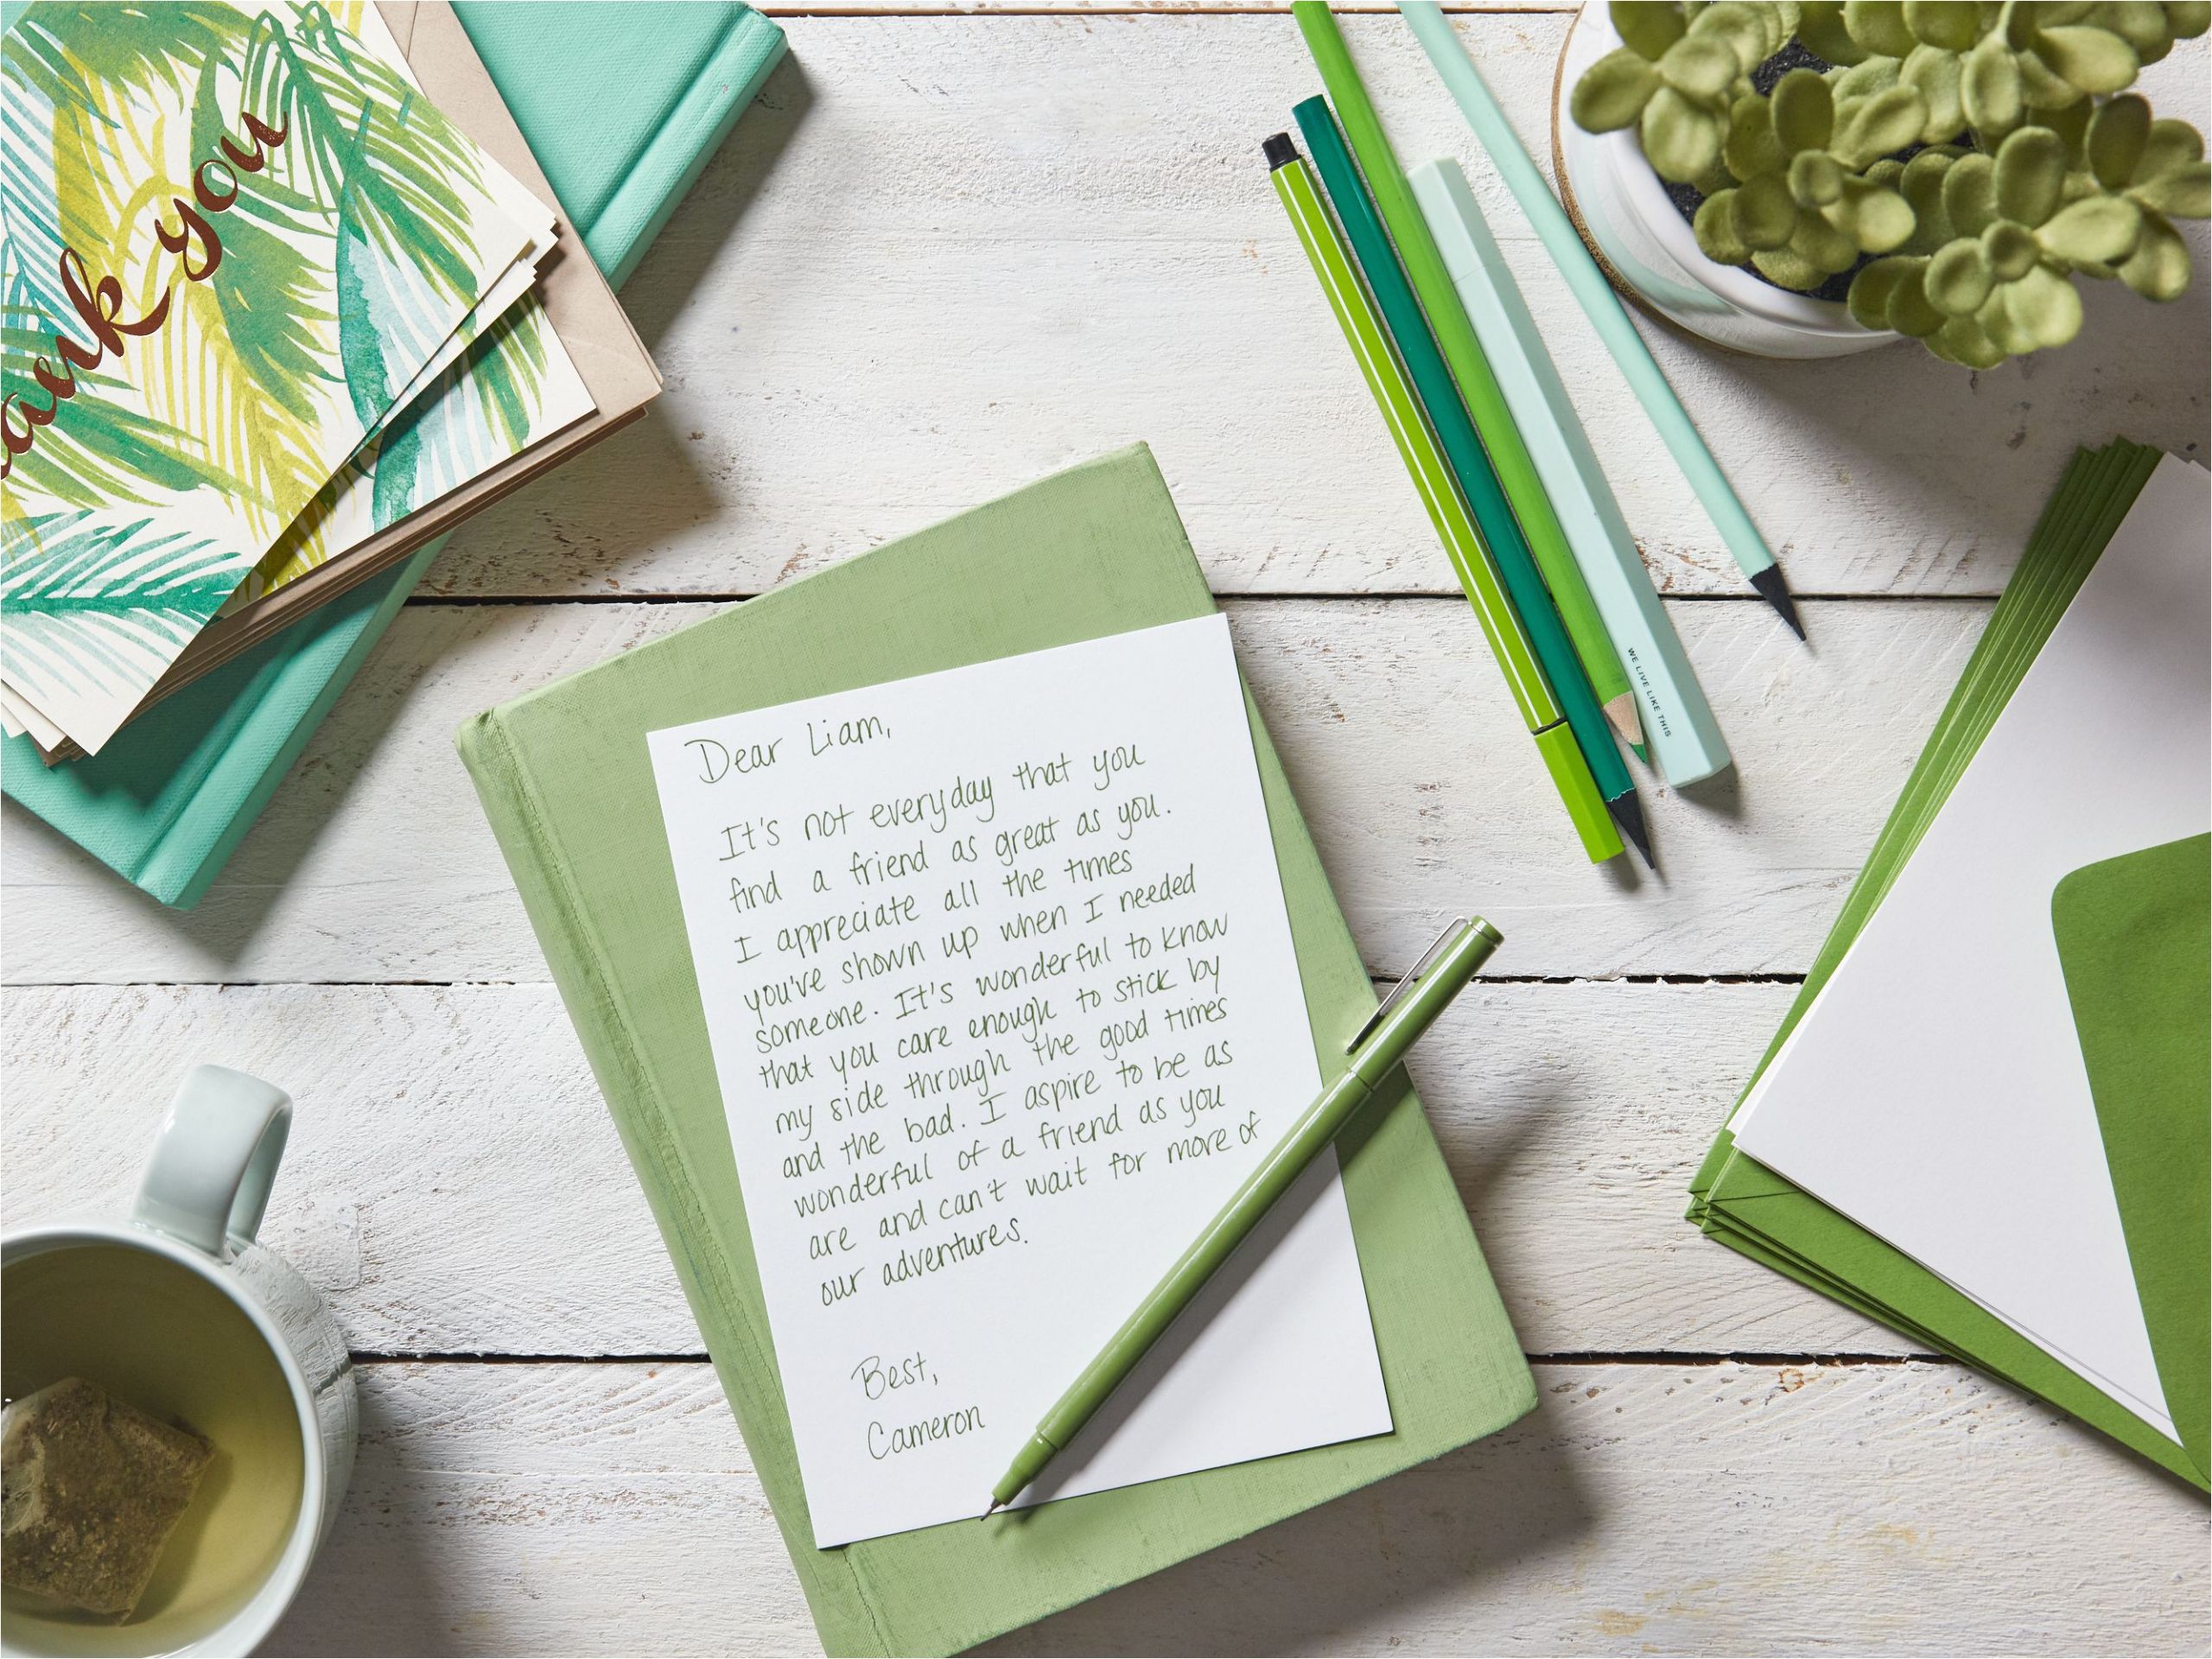 ank you
WE LIVE LIKE THIS
Dear Liam,
It's not everyday that you
find a friend as great as you.
I appreciate all the times
you've shown up when I needed
someone. It's wonderful to know
that you care enough to stick by
my side through the good times
and the bad. I aspire to be as
wonderful of a friend as you
are and can't wait for more of
our adventures.
Best,
Cameron